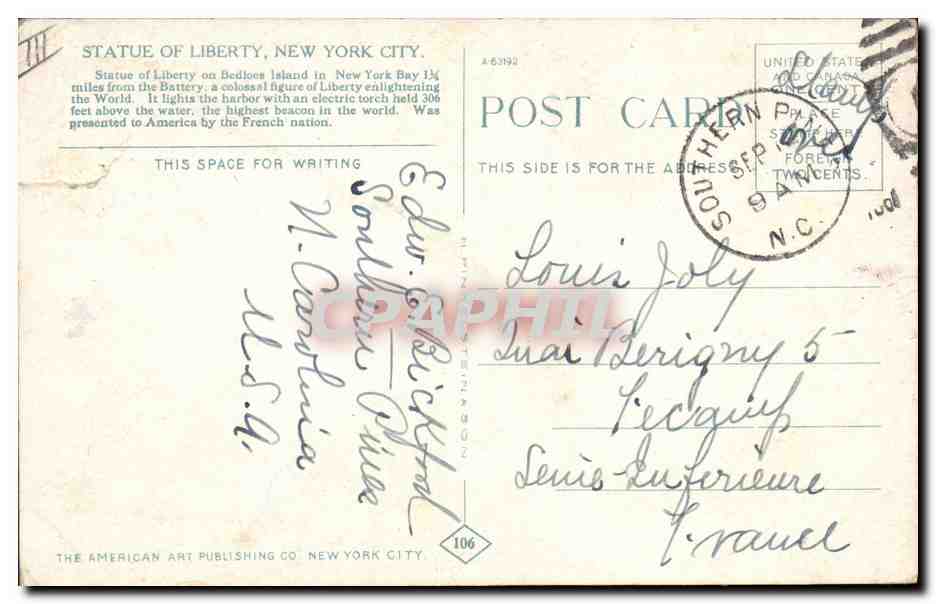 III
STATUE OF LIBERTY, NEW YORK CITY.
Statue of Liberty on Bedloes Island in New York Bay 1¾
miles from the Battery, a colossal figure of Liberty enlightening
the World. It lights the harbor with an electric torch held 306
feet above the water, the highest beacon in the world. Was
presented to America by the French nation.
THIS SPACE FOR WRITING
Edw. E. Bickford
Southern Pines
N. Carolina
U.S.A.
THE AMERICAN ART PUBLISHING CO. NEW YORK CITY.
106
H. FINKELSTEIN & SON
A-63192
POST CARD
THIS SIDE IS FOR THE ADDRESS
UNITED STATES
AND CANADA
ONE CENT
PLACE
STAMP HERE
FOREIGN
TWO CENTS.
SOUTHERN PINES
SEP
9 AM
N.C.
Louis Joly
Quai Berigny 5
Fecamp
Seine-Inferieure
France
CPAPHIL